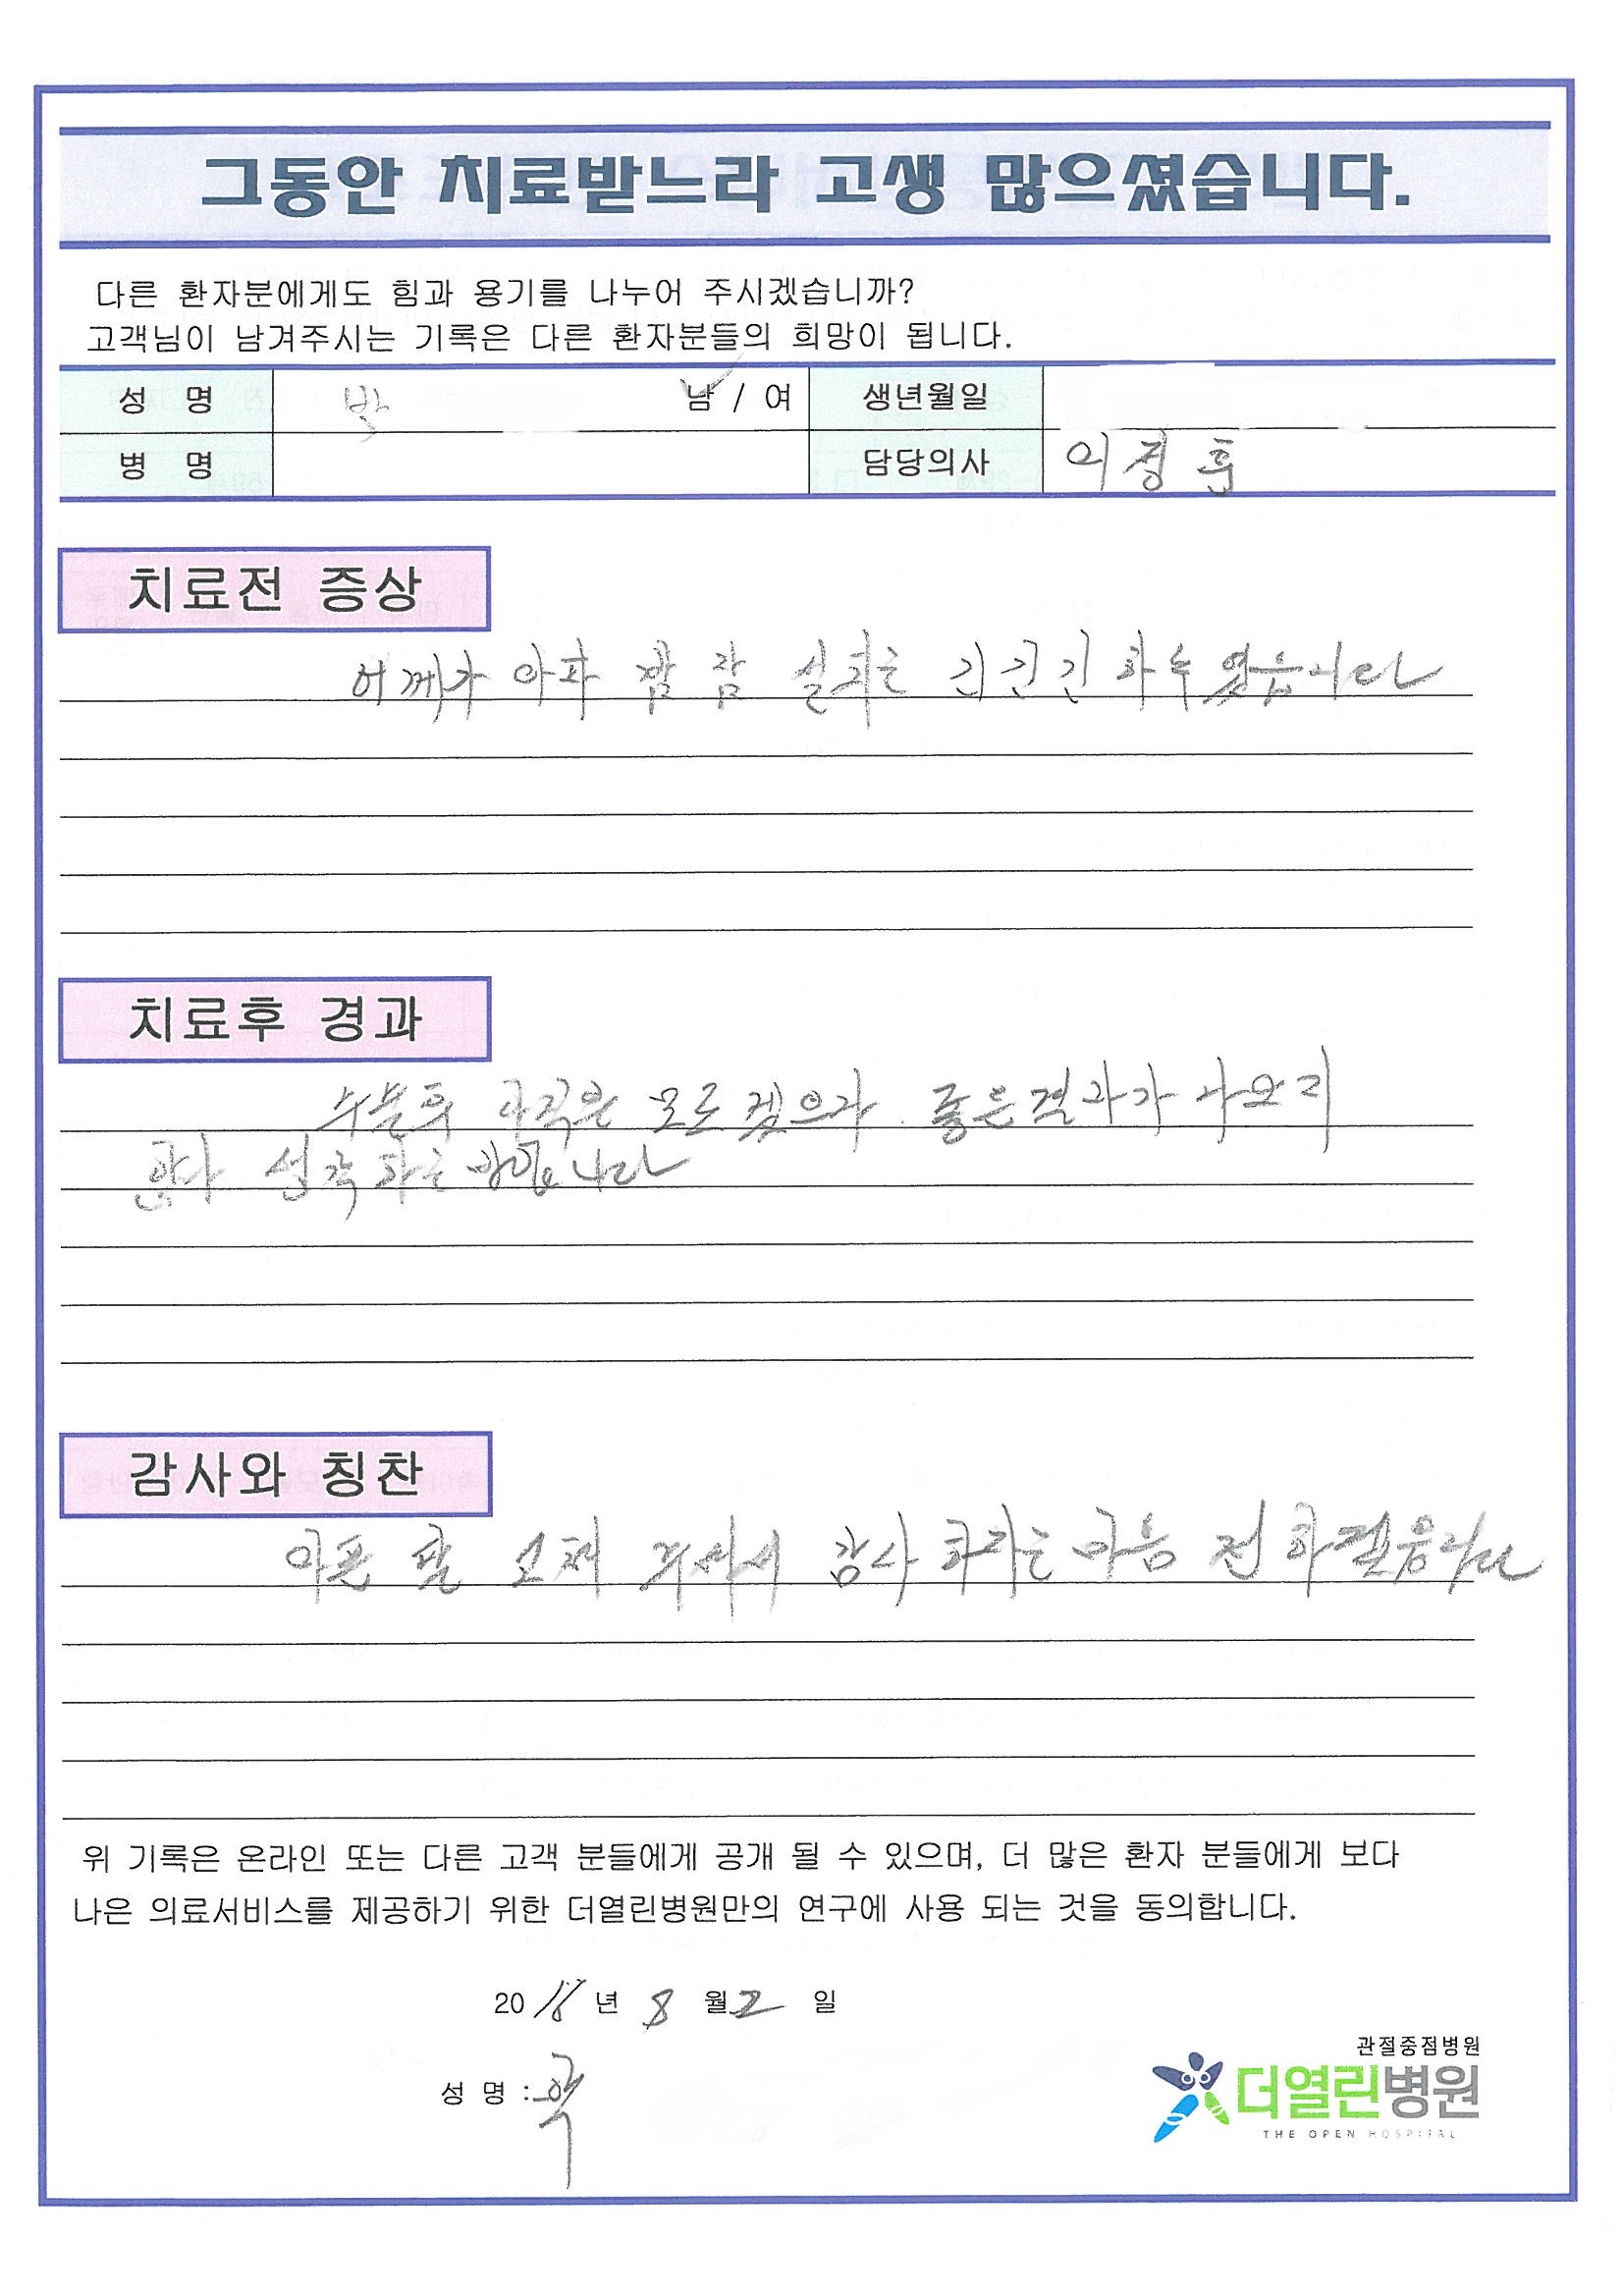 그동안 치료받느라 고생 많으셨습니다.
다른 환자분에게도 힘과 용기를 나누어 주시겠습니까?
고객님이 남겨주시는 기록은 다른 환자분들의 희망이 됩니다.
성 명 박 남 / 여 생년월일
병 명 담당의사 이정훈
치료전 증상
어깨가 아파 잠 잠
치료후 경과
아직은 모르겠으나 좋은결과가 나오리
생각하는
감사와 칭찬
아픈 팔 고쳐 주셔서 감사 하다는 마음 전
위 기록은 온라인 또는 다른 고객 분들에게 공개 될 수 있으며, 더 많은 환자 분들에게 보다
나은 의료서비스를 제공하기 위한 더열린병원만의 연구에 사용 되는 것을 동의합니다.
2018년 8 월 2 일
성 명 :
관절중점병원
더열린병원
THE OPEN HOSPITAL